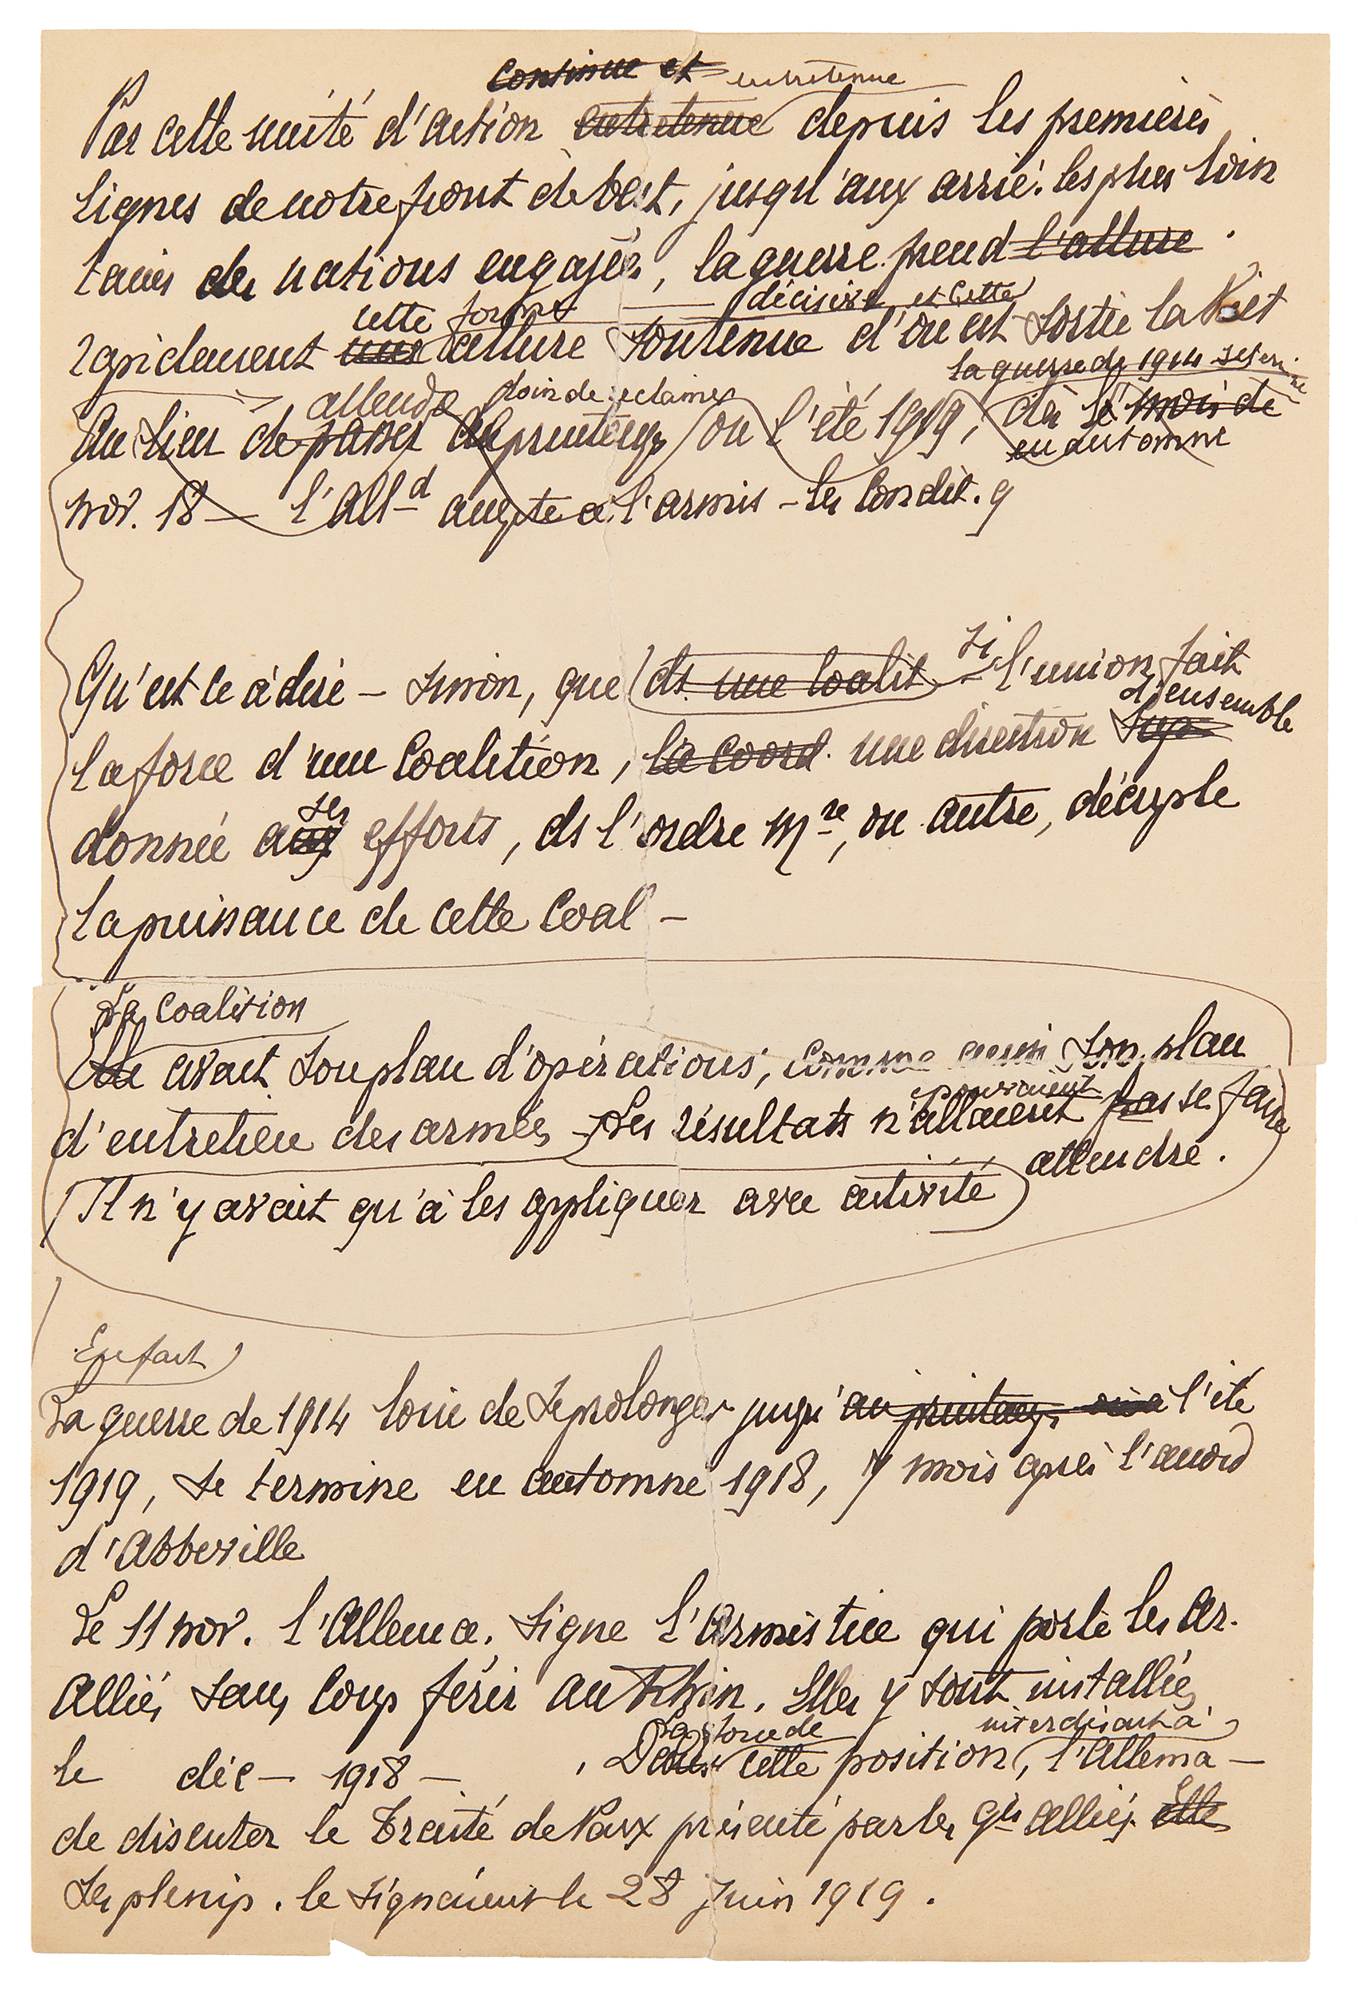 Continue et entretenue
Par cette unité d'action entretenue depuis les premières
lignes de notre front de bat, jusqu'aux arriè. les plus loin
taines des nations engagées, la guerre prend l'allure
cette forme décisive et cette
rapidement une allure soutenue d'où est sortie la Vict
la guerre de 1914 se termine
allends loin de réclamer
Au lieu de passer au printemps ou l'été 1919, dès le mois de
en automne
nov. 18 — l'All-d accepte à l'armis - les condit. q
Qu'est ce à dire — sinon, que ds une coalit — si l'union fait
d'ensemble
la force d'une Coalition, la coord. une direction sup
ses
donnée aux efforts, ds l'ordre Mre, ou autre, décuple
la puissance de cette Coal —
La Coalition
Elle avait son plan d'opérations, comme aussi son plan
pouvaient
d'entretien des armées — Les résultats n'allaient pas se faire
attendre.
Il n'y avait qu'à les appliquer avec activité
En fait
La guerre de 1914 loin de se prolonger jusqu'au printemps ou à l'été
1919, se termine en automne 1918, 7 mois après l'accord
d'Abbeville
Le 11 nov. l'Allemae. signe l'Armistice qui porte les Ar.
Alliées sans coup férir au Rhin. Elles y sont installées
La force de interdisant à
le déc — 1918 — , Dans cette position, l'Allema —
de discuter le Traité de Paix présenté par les Gts Alliés. Elle
Ses plenip. le signaient le 28 Juin 1919.